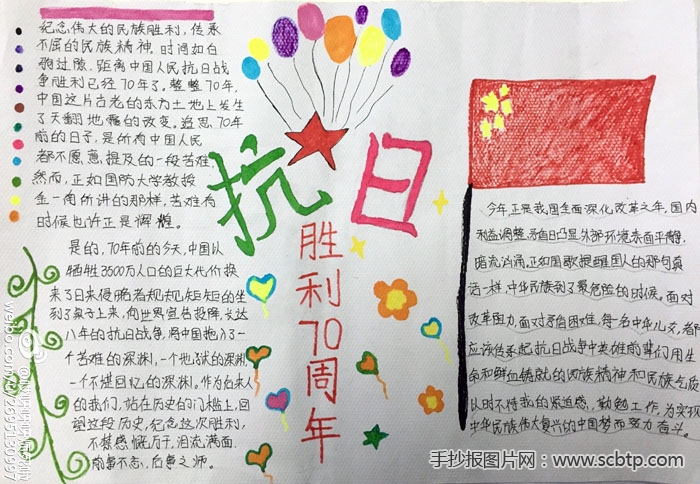 纪念伟大的民族胜利，传承
不屈的民族精神。时间如白
驹过隙，距离中国人民抗日战
争胜利已经70年了。整整70年，
中国这片古老的东方土地上发生
了天翻地覆的改变。追思70年
前的日子，是所有中国人民
都不愿意提及的一段苦难
然而，正如国防大学教授
金一南所讲的那样，苦难有
时候也许正是辉煌。
是的，70年前的今天，中国以
牺牲3500万人口的巨大代价换
来了日来侵略者规规矩矩的坐
到了桌子上来，向世界宣告投降，长达
八年的抗日战争，将中国拖入了一
个苦难的深渊，一个地狱的深渊
一个不堪回忆的深渊，作为后来人
的我们，站在历史的门槛上，回
望这段历史，纪念这次胜利，
不禁感慨万千，泪流满面。
前事不忘，后事之师。
抗日
胜利70周年
今年，正是我国全面深化改革之年，国内
利益调整，矛盾日凸显，外部环境表面平静，
暗流汹涌，正如国歌提醒国人的那句真
话一样，中华民族到了最危险的时候，面对
改革阻力，面对矛盾困难，每一名中华儿女，都
应该传承起抗日战争中英雄前辈们用生
命和鲜血铸就的民族精神和民族气质
以时不待我的紧迫感，勤勉工作，为实现
中华民族伟大复兴的中国梦而努力奋斗。
手抄报图片网：www.scbtp.com